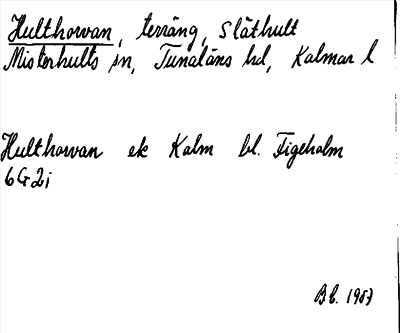 Hulthorvan, terräng, Släthult
Misterhults sn, Tunaläns hd, Kalmar l
Hulthorvan ek Kalm bl. Figeholm
6G2i
Bb. 1953